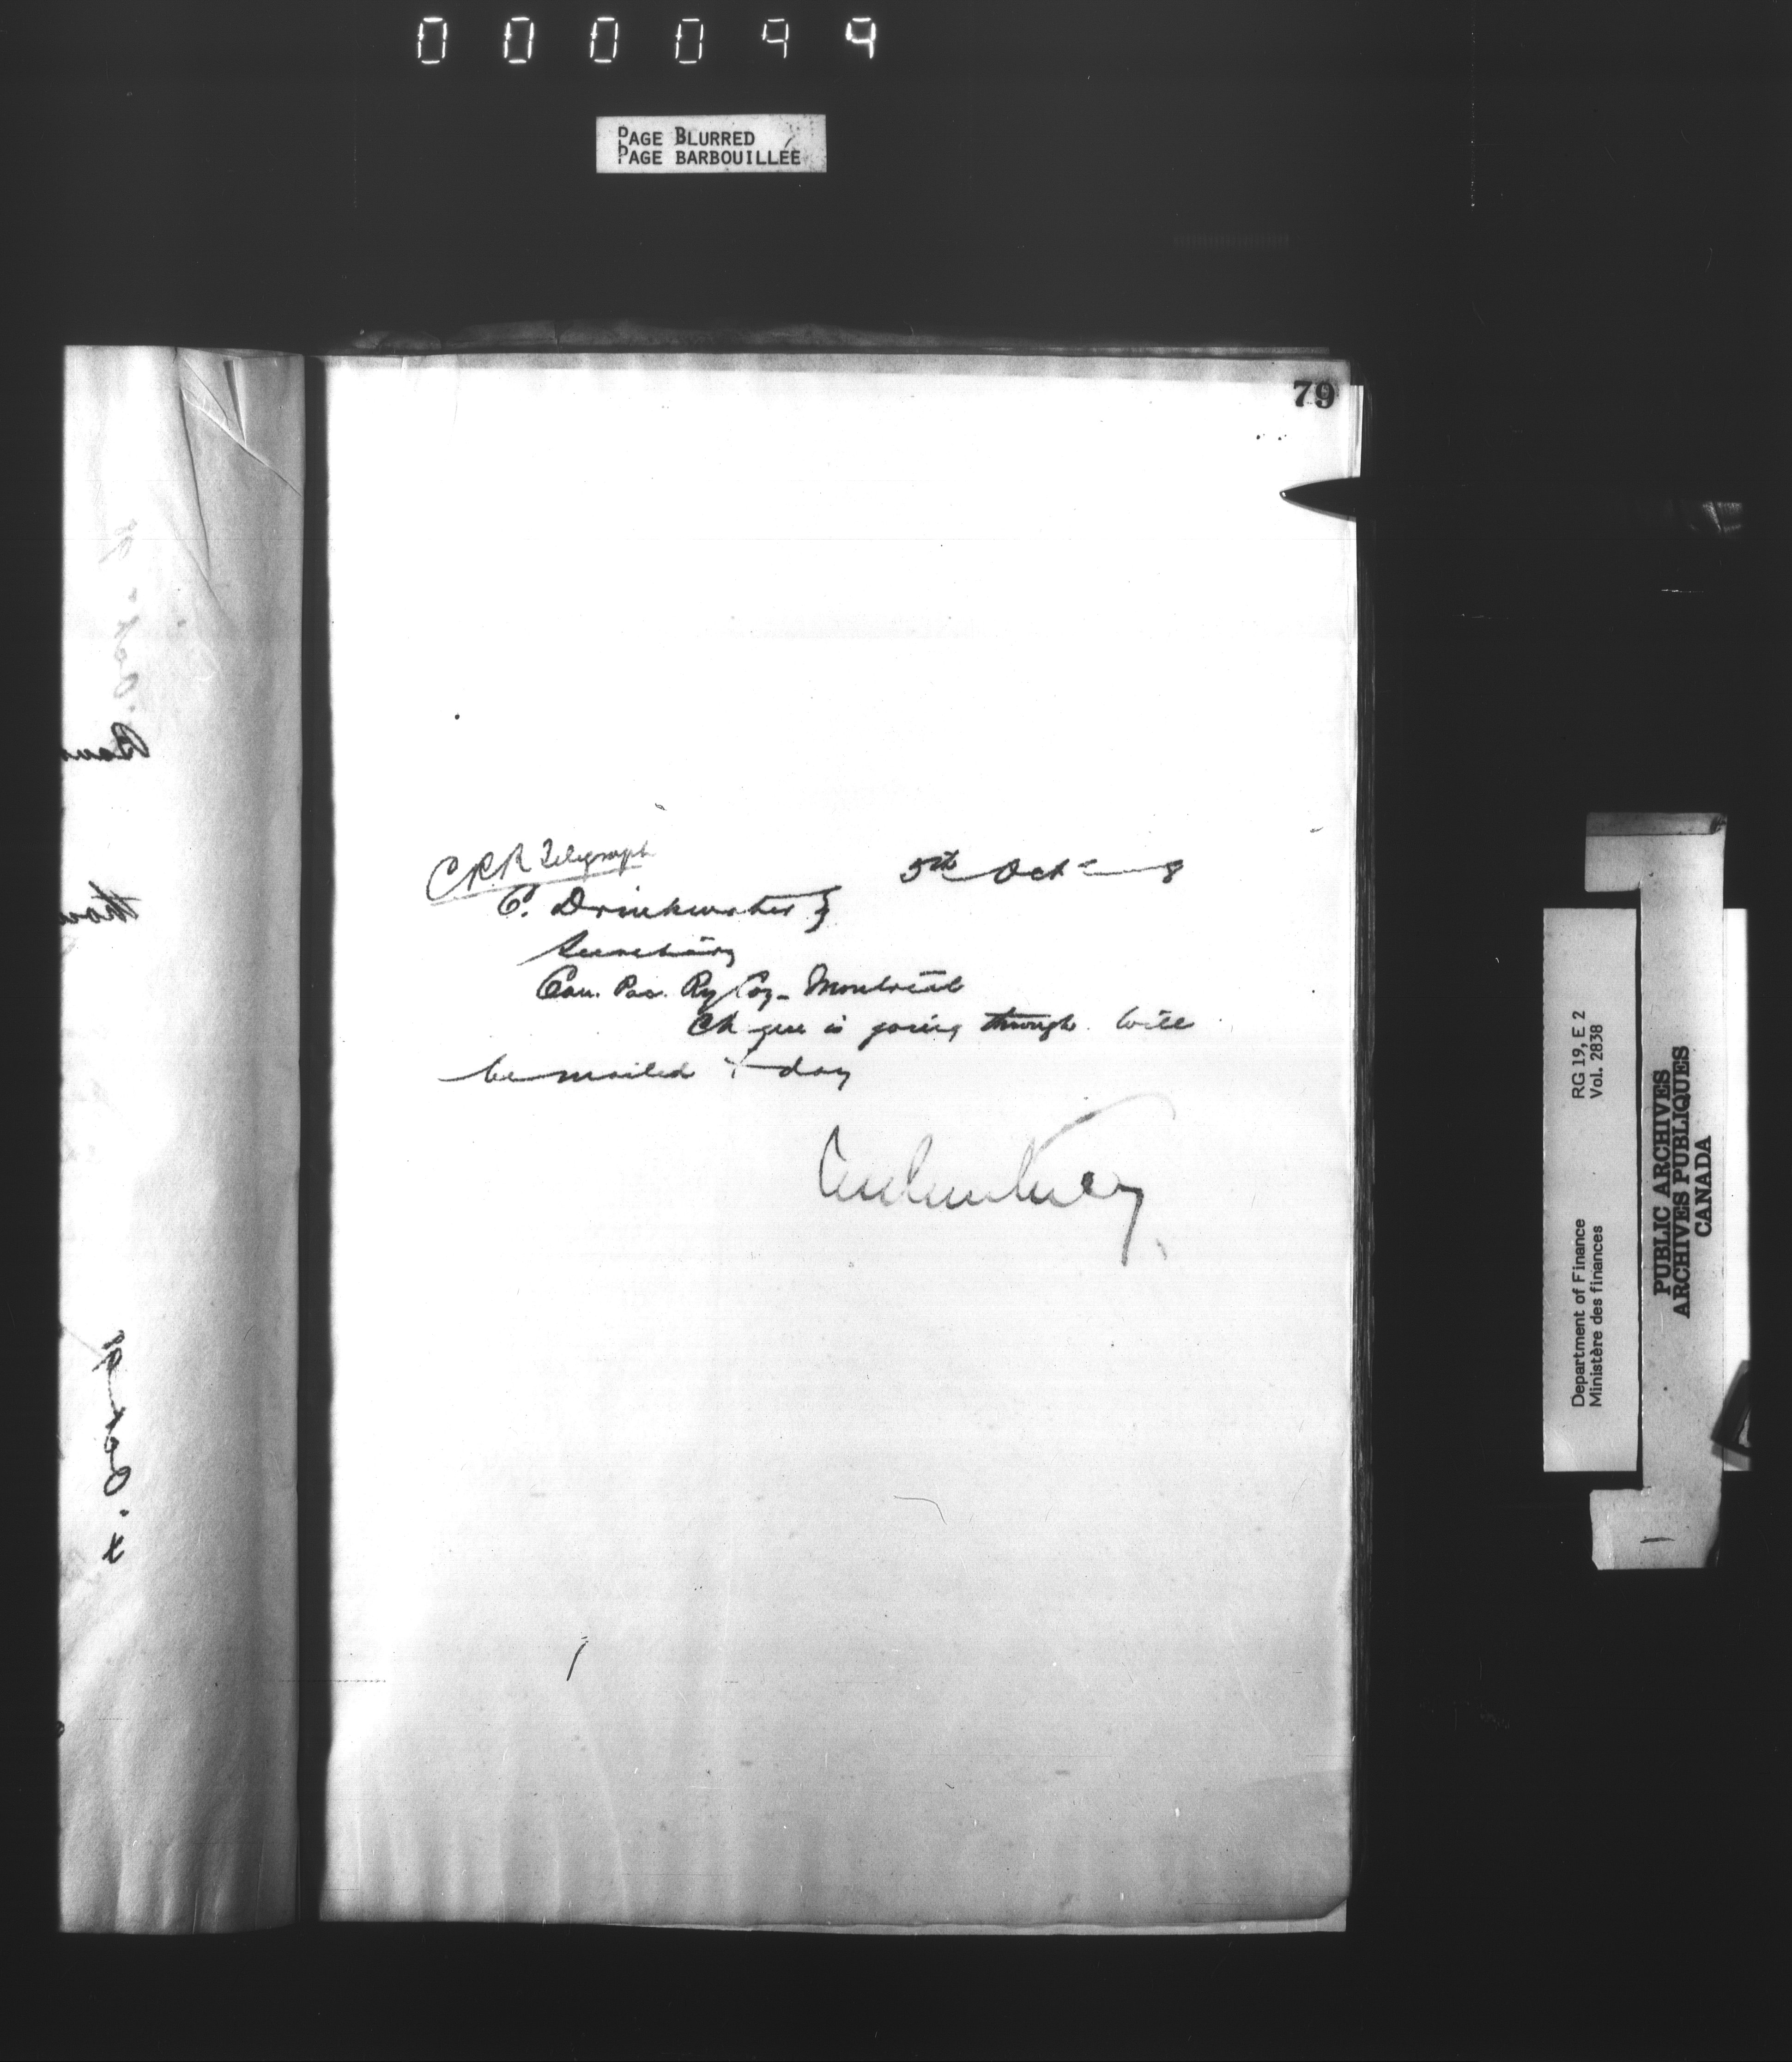 000099
PAGE BLURRED
PAGE BARBOUILLÉE
79
C.P.R. Telegraph
5th Oct 8
C. Drinkwater }
Secretary
Can. Pac. Ry Coy - Montreal
Cheque is going through. Will
be mailed to day
RG 19, E 2
Vol. 2838
Department of Finance
Ministère des finances
PUBLIC ARCHIVES
ARCHIVES PUBLIQUES
CANADA